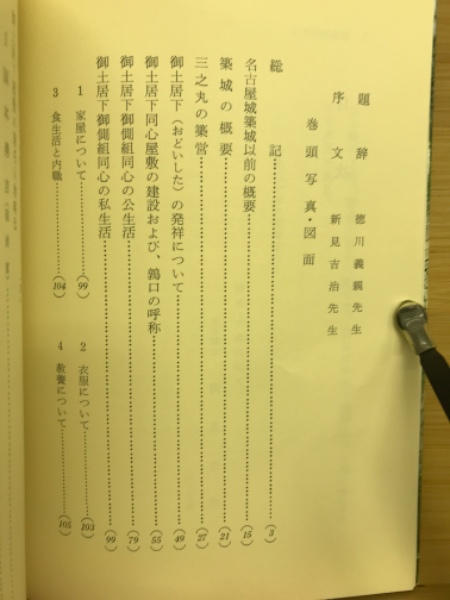 題辞 徳川義親先生
序文 新見吉治先生
巻頭写真・図面
総記………(3)
名古屋城築城以前の概要………(15)
築城の概要………(21)
三之丸の築営………(27)
御土居下(おどいした)の発祥について………(49)
御土居下同心屋敷の建設および、鶉口の呼称………(55)
御土居下御側組同心の公生活………(79)
御土居下御側組同心の私生活………(99)
1 家屋について………(99)
2 衣服について………(103)
3 食生活と内職………(104)
4 教養について………(105)